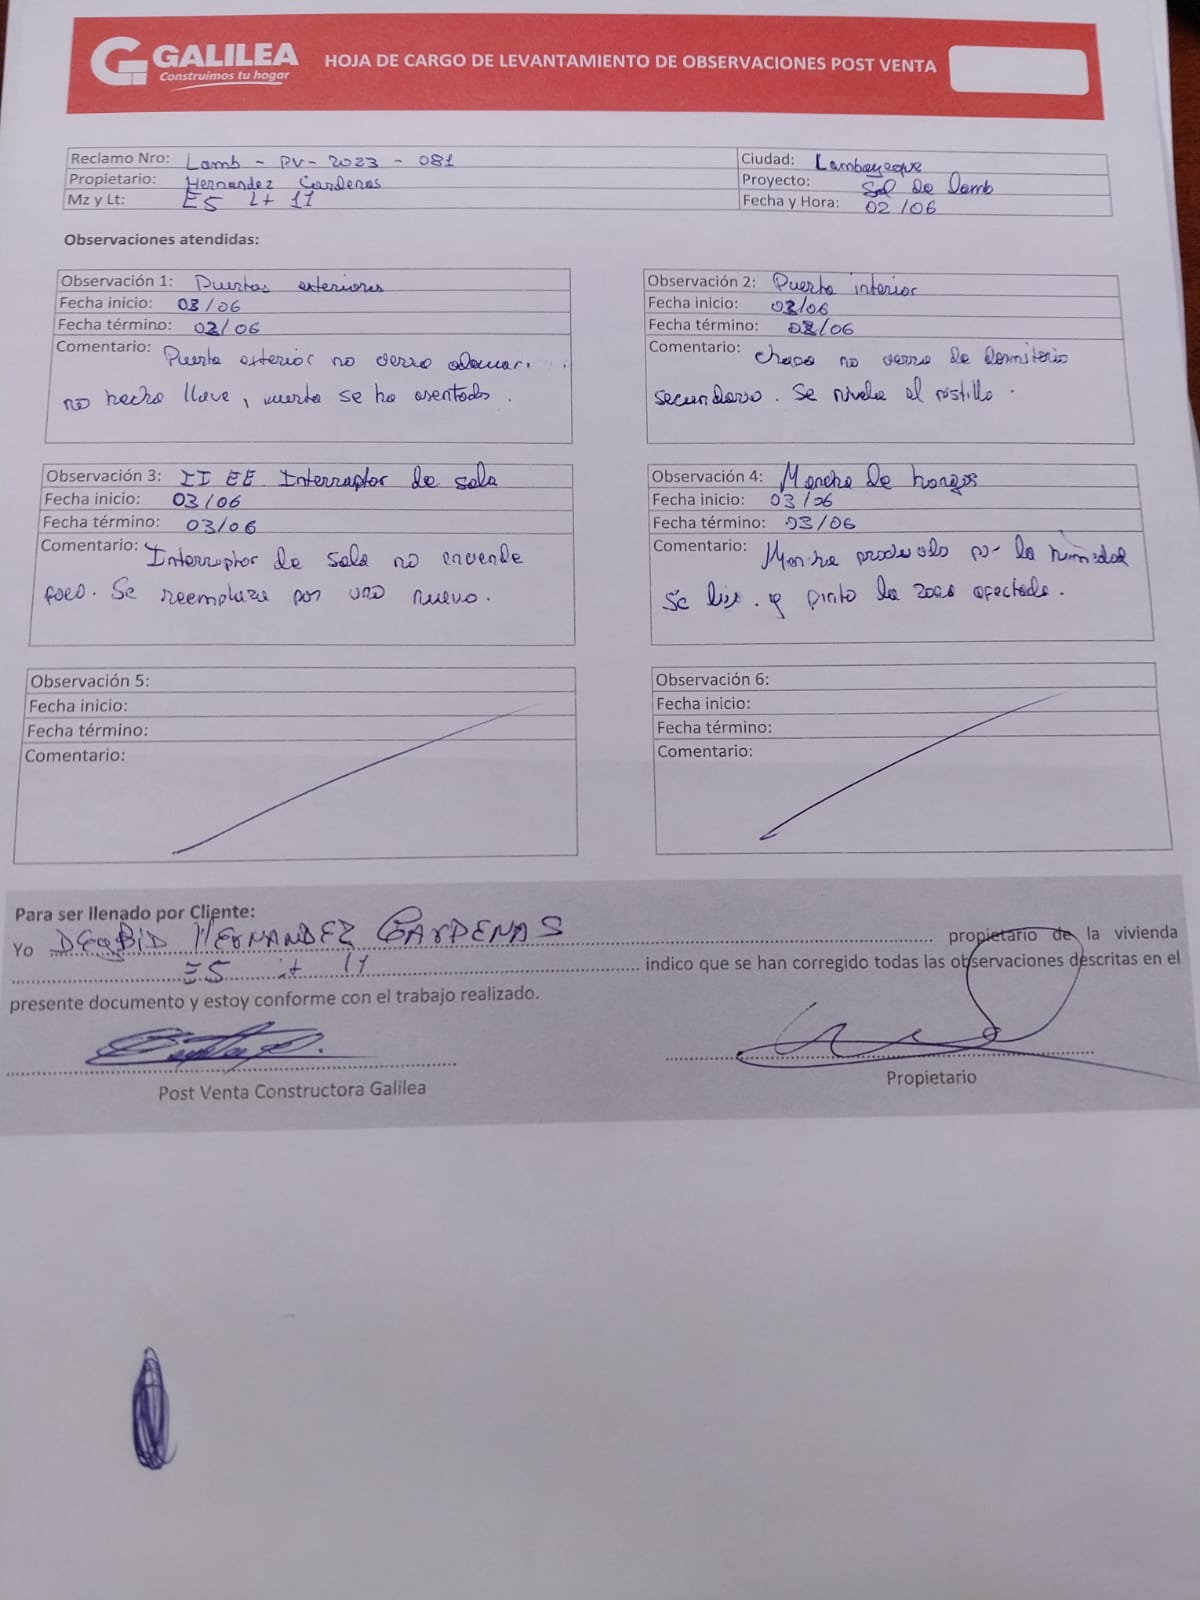 GALILEA
Construimos tu hogar
HOJA DE CARGO DE LEVANTAMIENTO DE OBSERVACIONES POST VENTA
Reclamo Nro: Lamb - PV- 2023 - 081
Ciudad: Lambayeque
Propietario: Hernandez Cardenas
Proyecto: Sol de Lamb
Mz y Lt: E5 Lt 17
Fecha y Hora: 02/06
Observaciones atendidas:
Observación 1: Puertas exteriores
Fecha inicio: 03/06
Fecha término: 03/06
Comentario: Puerta exterior no cierra
no hecho llave, puerta se ha asentado.
Observación 2: Puerta interior
Fecha inicio: 03/06
Fecha término: 03/06
Comentario: Chapa no cierra de dormitorio
secundario. Se nivela el pistillo.
Observación 3: II EE Interruptor de sala
Fecha inicio: 03/06
Fecha término: 03/06
Comentario: Interruptor de sala no enciende
foco. Se reemplaza por uno nuevo.
Observación 4: Mancha de hongos
Fecha inicio: 03/06
Fecha término: 03/06
Comentario: Mancha producido por la humedad
Se lijo. y pinto la zona afectada.
Observación 5:
Fecha inicio:
Fecha término:
Comentario:
Observación 6:
Fecha inicio:
Fecha término:
Comentario:
Para ser llenado por Cliente:
Yo HERNANDEZ CARDENAS propietario de la vivienda
E5 lt 17 indico que se han corregido todas las observaciones descritas en el
presente documento y estoy conforme con el trabajo realizado.
Post Venta Constructora Galilea
Propietario